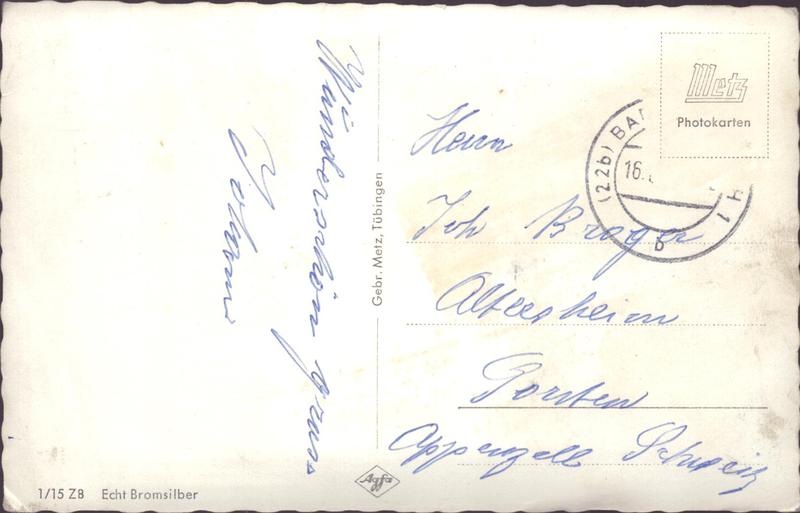 Wunderschön gruss
Metz
Photokarten
(22b) BA
16.
H 1
b
Herrn
Joh Broger
Altersheim
Torsten
Appenzell Schweiz
Gebr. Metz, Tübingen
Agfa
1/15 Z8 Echt Bromsilber